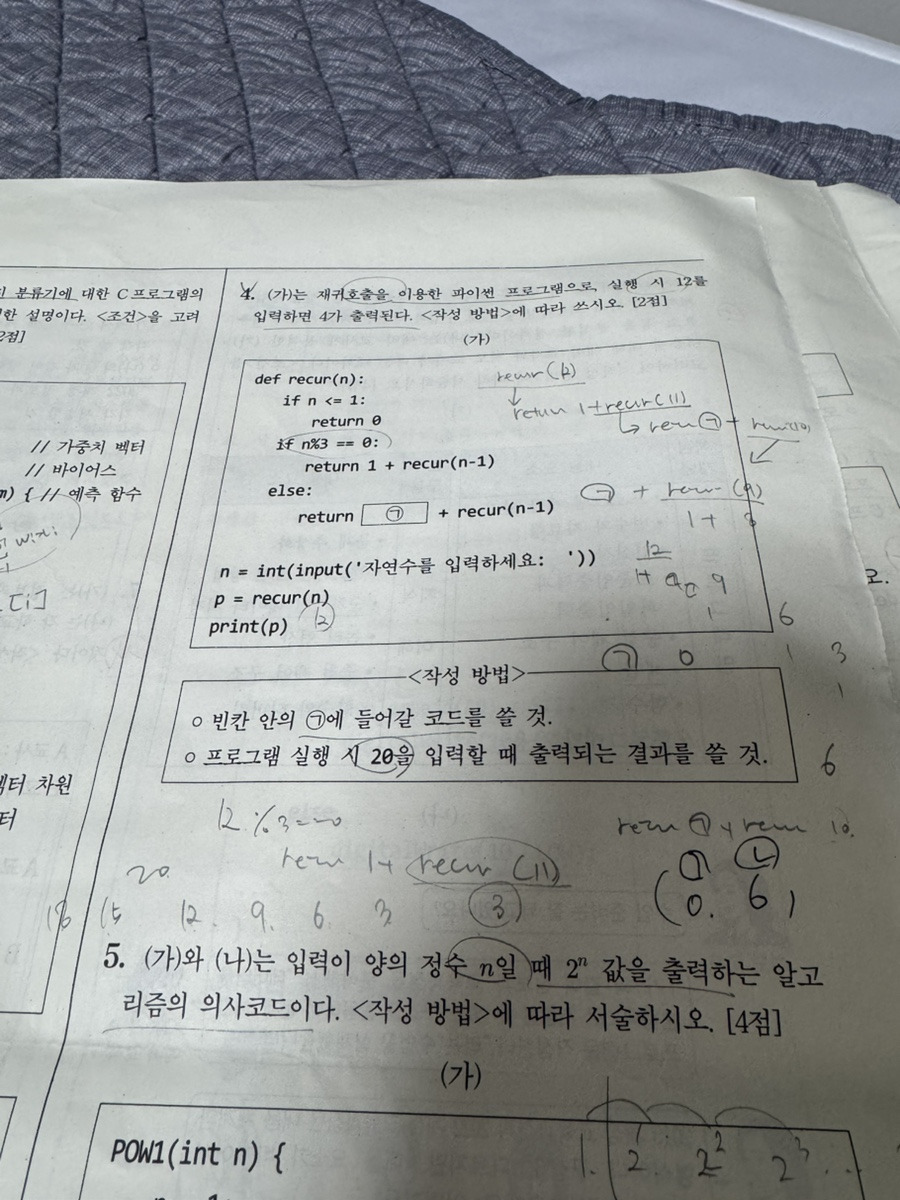 분류기에 대한 C프로그램의
한 설명이다. <조건>을 고려
2점]
// 가중치 벡터
// 바이어스
m) { // 예측 함수
[i]
벡터 차원
터
4. (가)는 재귀호출을 이용한 파이썬 프로그램으로, 실행 시 12를
입력하면 4가 출력된다. <작성 방법>에 따라 쓰시오. [2점]
(가)
def recur(n):
if n <= 1:
return 0
if n%3 == 0:
return 1 + recur(n-1)
else:
return ㉠ + recur(n-1)
n = int(input('자연수를 입력하세요: '))
p = recur(n)
print(p)
12
recur(12)
↓ return 1+recur(11)
㉠ + recur(9)
1+ 8
12
1+ 9
6
1 3
1
㉠ 0
<작성 방법>
○ 빈칸 안의 ㉠에 들어갈 코드를 쓸 것.
○ 프로그램 실행 시 20을 입력할 때 출력되는 결과를 쓸 것.
6
12 % 3 == 0
recur 1+ recur(11)
recur ㉠ + recur 10.
20.
18 15 12. 9. 6. 3 3
㉠ ㉡
(0. 6)
5. (가)와 (나)는 입력이 양의 정수 n일 때 2ⁿ 값을 출력하는 알고
리즘의 의사코드이다. <작성 방법>에 따라 서술하시오. [4점]
(가)
POW1(int n) {
1. 2. 2² 2³ ...